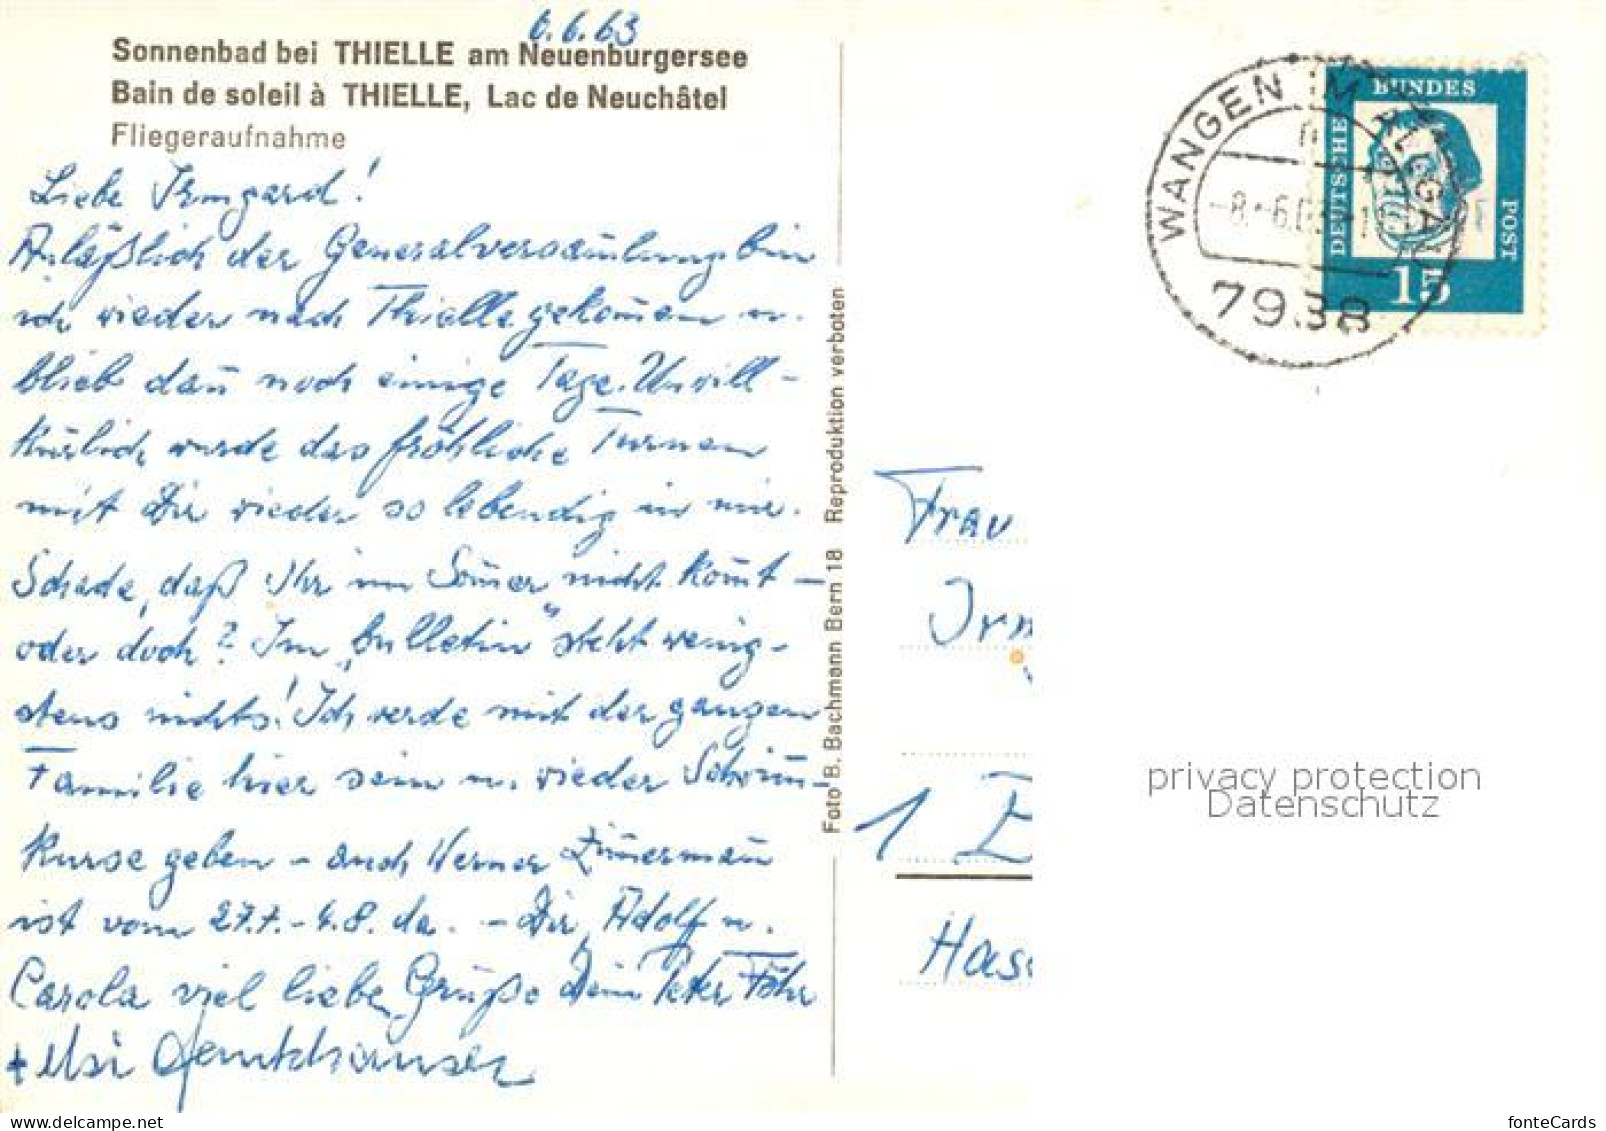 6.6.63
Sonnenbad bei THIELLE am Neuenburgersee
Bain de soleil à THIELLE, Lac de Neuchâtel
Fliegeraufnahme
Liebe Irmgard!
Anläßlich der Generalversam̄lung bin
ich wieder nach Thielle gekom̄en u.
blieb dan̄ noch einige Tage. Unwill-
kürlich wurde das fröhliche Turnen
mit Dir wieder so lebendig in mir.
Schade, daß Ihr im Som̄er nicht kom̄t —
oder doch? Im „bulletin" steht wenig-
stens nichts! Ich werde mit der ganzen
Familie hier sein u. wieder Schwim̄-
kurse geben – auch Werner Zim̄erman̄
ist vom 27.7.-4.8. da. – Dir, Adolf u.
Carola viel liebe Grüße Dein Peter Föhr
+ Usi
Foto B. Bachmann Bern 18 Reproduktion verboten
WANGEN IM ALLGÄU
-8.-6.6
7938
DEUTSCHE BUNDES POST
15
Frau
Irm
1
Hass
privacy protection
Datenschutz
delcampe.net
fonteCards